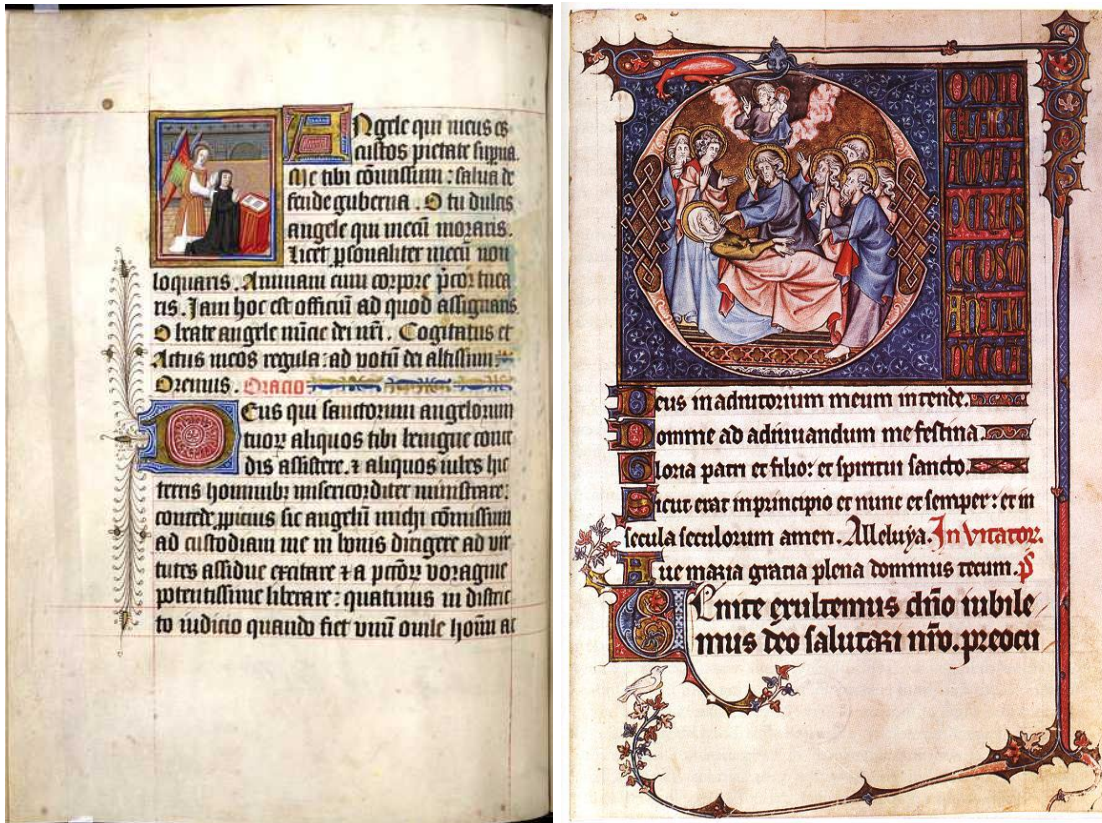 Angele qui meus es
custos pietate sup̄na.
Me tibi cōmissum : salua de
fende guberna . O tu dulcis
angele qui mecū moraris.
Licet ꝑsonaliter mecū non
loquaris . Animam cum corpore p̄cor tuea
ris . Iam hoc est officiū ad quod assignaris
O beate angele nūcie dei nr̄i . Cogitatus et
Actus meos regula : ad votū dei altissimi
Oremus . Oracio
Deus qui sanctorum angelorum
tuoꝝ aliquos tibi benigne conce
dis assistere . ⁊ aliquos iubes hic
terris hominibꝫ misericorditer ministrare:
concede ꝓpicius sic angelū michi cōmissum
ad custodiam me in bonis dirigere ad vir
tutes assidue excitare ⁊ a pctōꝝ voragine
potentissime liberare : quatinus in distric
to iudicio quando fiet vnū ouile hoīm ac
Deus in adiutorium meum intende.
Domine ad adiuuandum me festina
Gloria patri et filio: et spiritui sancto.
Sicut erat in principio et nunc et semper: et in
secula seculorum amen. Alleluya. Inuitator.
Aue maria gratia plena dominus tecum. ps
Uenite exultemus dn̄o iubile
mus deo salutari nr̄o. preocu